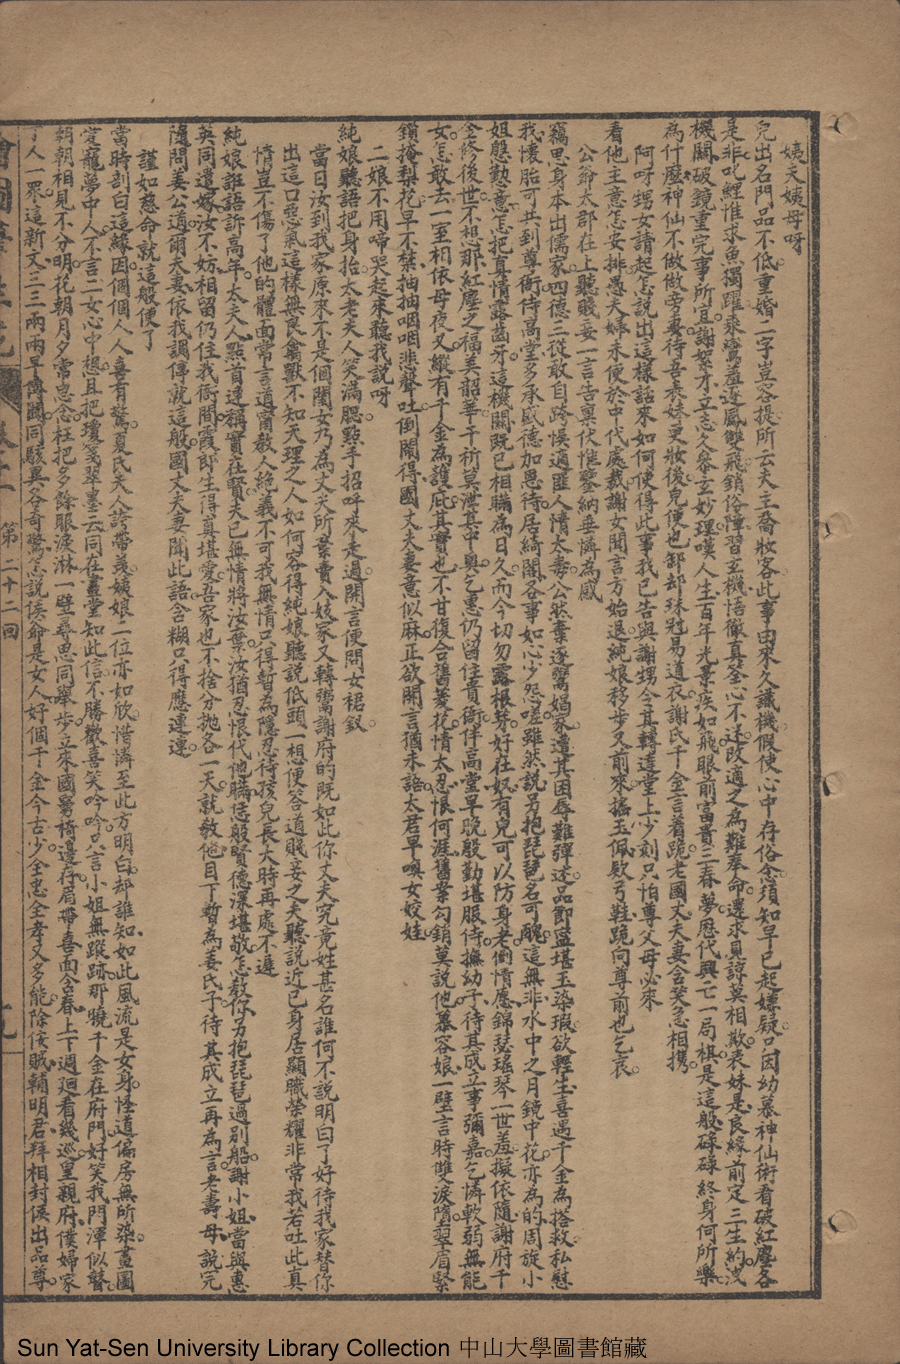 姨夫姨母呀
兒出名門品不低重婚二字豈容提所云夫主喬妝客此事由來久識機假使心中存俗念須知早已起嫌疑只因幼慕神仙術看破紅塵各
是非叱鯉惟求魚獨躍乘鸞羞逐鳳雙飛銷俗慮習玄機悟徹真荃心不迷改適之為難奉命還求見諒莫相欺表妹是良緣前定三生約洩
機關破鏡重完事所宜謝絮才立志久參玄妙理嘆人生百年光景疾如飛眼前富貴三春夢歷代興亡一局棋是這般碌碌終身何所樂
為什麼神仙不做做旁妻待吾表妹更妝後兒便也卸却珠冠易道衣謝氏千金言着跪老國丈夫妻含笑急相攜
阿呀甥女請起怎說出這樣話來如何使得此事我已告與謝甥令其轉達堂上少刻只怕尊父母必來
看他主意怎安排愚夫婦未便於中代處裁謝女聞言方始退純娘移步又前來搖玉佩歛弓鞋跪向尊前也乞哀
公爺太郡在上聽賤妾一言告稟伏惟鑒納垂憐為感
竊思身本出儒家四德三從敢自誇悞適匪人情太毒公然棄逐鸞娼家遭其困辱難彈述品節藍堪玉染瑕欲輕生喜遇千金為搭救私慰
我懷胎可共到尊衙待高堂多承感德加恩待居綺閣各事如心少怨嗟雖然說另抱琵琶名可醜這無非水中之月鏡中花亦為的周旋小
姐慇懃意怎把真情露齒牙這機關既已相瞞為日久而今切勿露根芽好在奴有兒可以防身老倒情愿錦瑟瑤琴一世羞擬依隨謝府千
金修後世不想那紅塵之福美韶華千祈莫洩其中奧乞惠仍留住貴衙伴高堂早晚殷勤堪服侍撫幼子待其成立事彌嘉乞憐軟弱無能
女怎敢去一室相依母夜叉縱有千金為護庇其實也不甘復合舊菱花情太忍恨何涯舊業勾銷莫說他慕容娘一壁言時雙淚墮翠眉緊
鎖掩梨花早不禁抽抽咽咽悲聲吐倒鬧得國丈夫妻意似麻正欲開言猶未語太君早喚女姣娃
二娘不用啼哭起來聽我說呀
純娘聽語把身抬太老夫人笑滿腮點手招呼來走過開言便問女裙釵
當日汝到我家原來不是個閨女乃為丈夫所棄賣入妓家又轉鸞謝府的既如此你丈夫究竟姓甚名誰何不說明白了好待我家替你
出這口惡氣這樣無良禽獸不知天理之人如何容得純娘聽說低頭一想便答道賤妾之夫聽說近已身居顯職榮耀非常我若吐此真
情豈不傷了他的體面常言道甯教人絕義不可我無情只得暫為隱忍待孩兒長大時再處不遲
純娘誑語訴高年太夫人點首連稱實在賢夫已無情將汝棄汝猶忍恨代他瞞恁般賢德深堪敬怎教你另抱琵琶過別船謝小姐當與惠
英同遣嫁汝不妨相留仍住我衙關霞郎生得真堪愛吾家也不捨分拋各一天就教他目下暫為姜氏子待其成立再為言老壽母說完
隨問姜公道爾夫妻依我調停就這般國丈夫妻聞此語含糊只得應連連
謹如慈命就這般便了
當時剖白這緣因個個人人喜有驚夏氏夫人誇帶羨姨娘二位亦如欣惜憐至此方明白却誰知如此風流是女身怪道偏房無所染畫圖
愛寵夢中人不言二女心中想且把瓊箋翠墨云同在畫堂知此信不勝歡喜笑吟吟只言小姐無蹤跡那曉千金在府門好笑我門渾似聾
絹朝相見不分明花朝月夕常忠念枉把多餘眼淚淋一壁尋思同舉步立來國舅椅邊存眉帶喜面含春上下週迴看幾巡皇親府僕婦家
丁人一眾這新文三三兩兩早傳聞同駭異各奇驚怎說侯爺是女人好個千金今古少全忠全孝又多能除佞賊輔明君拜相封侯出品尊
第二十二回
Sun Yat-Sen University Library Collection 中山大學圖書館藏